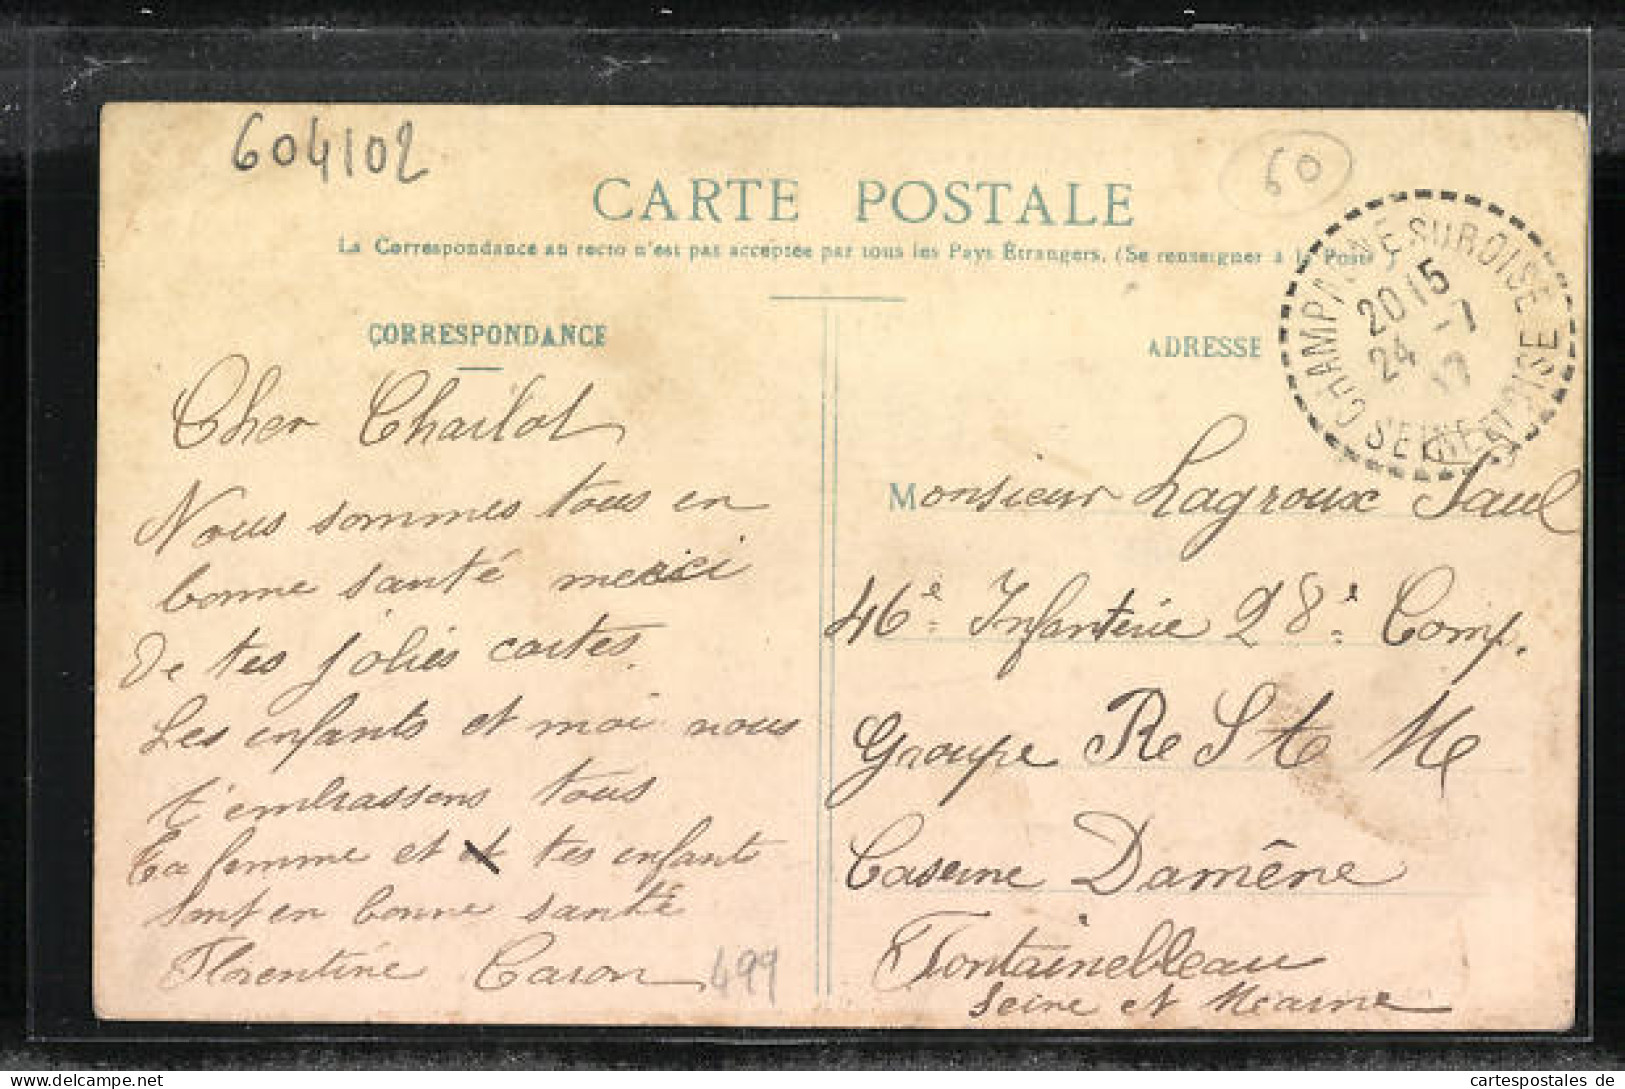 604102
60
CARTE POSTALE
La Correspondance au recto n'est pas acceptée par tous les Pays Étrangers. (Se renseigner à la Poste)
CHAMPAGNE SUR OISE
2015
24 -7
17
SEINE ET OISE
CORRESPONDANCE
Cher Charlot
Nous sommes tous en
bonne santé merci
De tes jolies cartes.
Les enfants et moi nous
t'embrassons tous
Ta femme et tes enfants
sont en bonne santé
Florentine Caron
499
ADRESSE
Monsieur Lagroux Paul
46e Infanterie 28e Comp.
Groupe Re Ste Me
Caserne Damême
Fontainebleau
Seine et Marne
cartespostales de